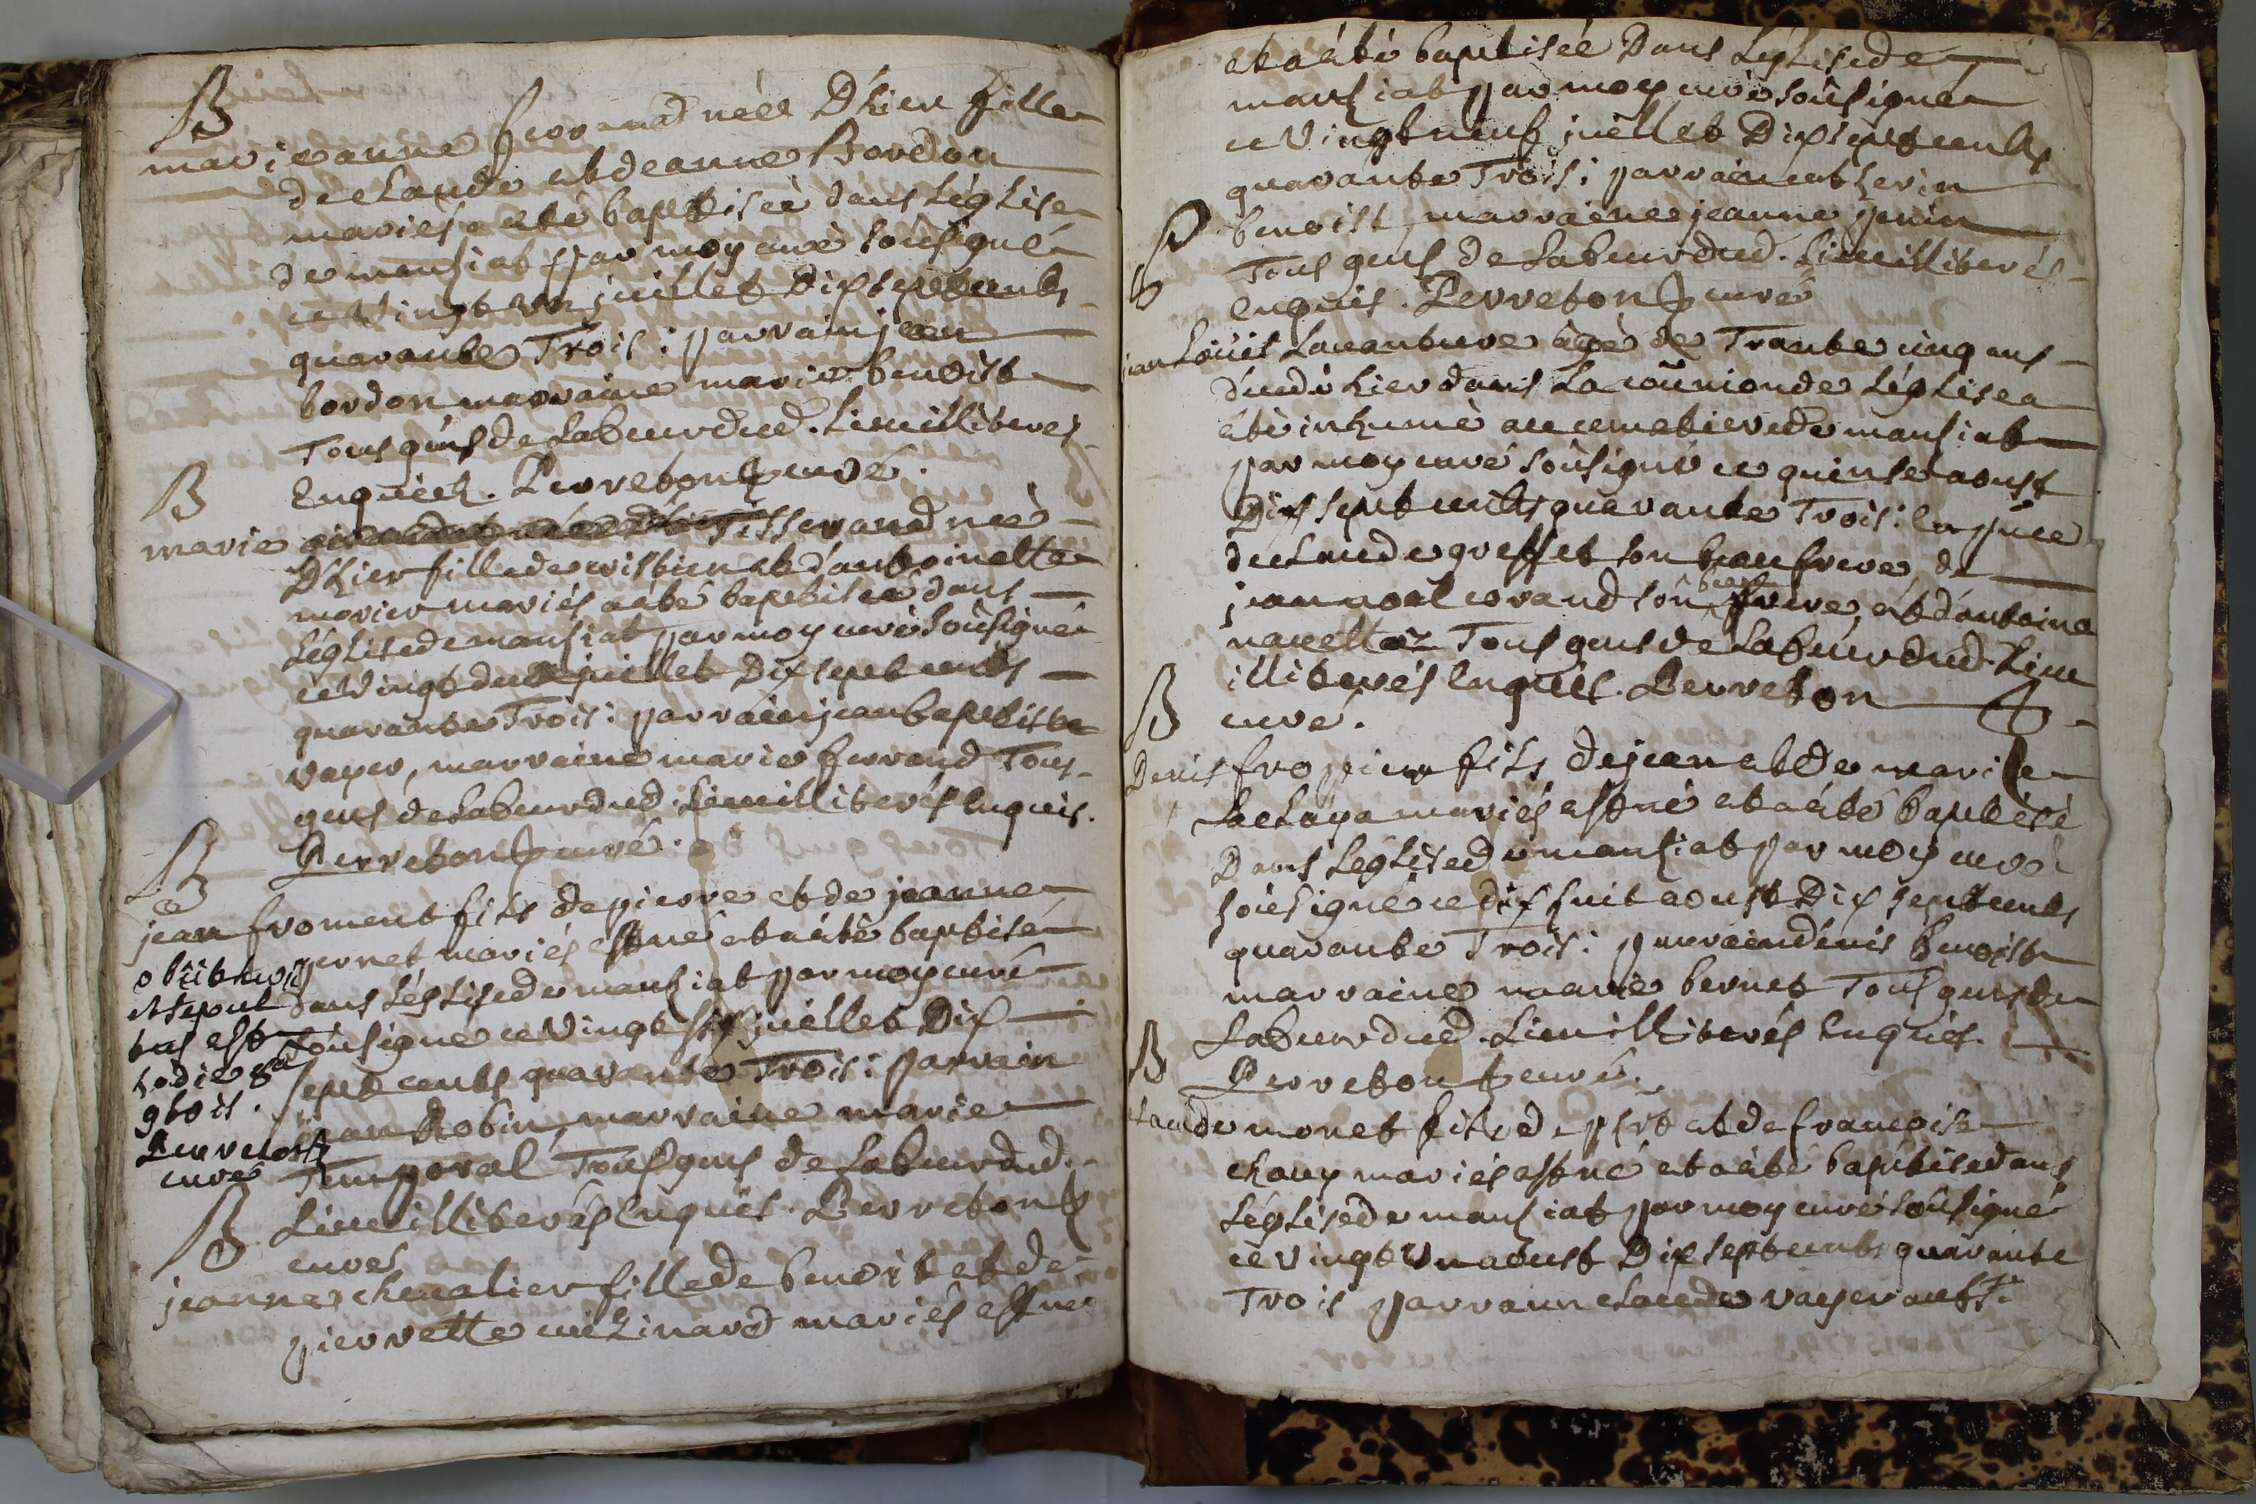 B
marie anne ferrand née D'hier fille
de claude et de anne Bordon
mariés a eté baptisée dans L'église
de mansiat par moy curé soûsigné
ce Vingt un juillet Dix sept cents
quarante Trois : parrain jean
bordon, marraine marie benoist
Tous gens de Labeur dud. Lieu illiterés
Enquis. Perreton curé.
B
marie Tisserand née
D'hier fille de et d'antoinette
morier mariés a eté baptisée dans
L'église de mansiat par moy curé soûsigné
ce Vingt deux juillet Dix sept cents
quarante Trois : parrain jean baptiste
vayer, marraine marie ferrand Tous
gens de Labeur dud. Lieu illiterés Enquis.
Perreton curé.
B
jean froment fils de pierre et de jeanne
pernet mariés est né et a eté baptisé
dans L'église de mansiat par moy curé
soûsigné ce Vingt six juillet Dix
sept cents quarante Trois : parrain
jean Robin, marraine marie
Temporal Tous gens de Labeur dud.
Lieu illiterés Enquis. Perreton
curé
obiit
et sepul
tus est
hodie 8a
9bris.
Perreton
curé
B
jeanne chevalier fille de benoit et de
pierrette michinard mariés est née
et a eté baptisée Dans L'église de
mansiat par moy curé soûsigné
ce Vingt neuf juillet Dix sept cents
quarante Trois : parrain catherin
benoist, marraine jeanne
Tous gens de Labeur dud. Lieu illiterés
Enquis. Perreton curé
S
jean Loüis Lavanture âgé de Trante cinq ans
décedé hier dans La coûmion de L'église a
eté inhumé au cemetiere de mansiat
par moy curé soûsigné ce quinse aoust
Dix sept cents quarante Trois : En pñce
de claude greffet son beaufrere, de
jean noal corand son beau frere, et d'antoine
Tous gens de Labeur dud. Lieu
illiterés Enquis. Perreton
curé.
B
Denis froppier fils de jean et de marie
Laclaya mariés est né et a eté baptisé
Dans L'église de mansiat par moy curé
soûsigné ce dix huit aoust Dix sept cents
quarante Trois : parrain denis Benoist
marraine marie bernet Tous gens de
Labeur dud. Lieu illiterés Enquis.
Perreton curé.
B
claude monet fils de et de françoise
chaux mariés est né et a eté baptisé dans
L'église de mansiat par moy curé soûsigné
ce Vingt Un aoust Dix sept cents quarante
Trois parrain claude vayer aussi